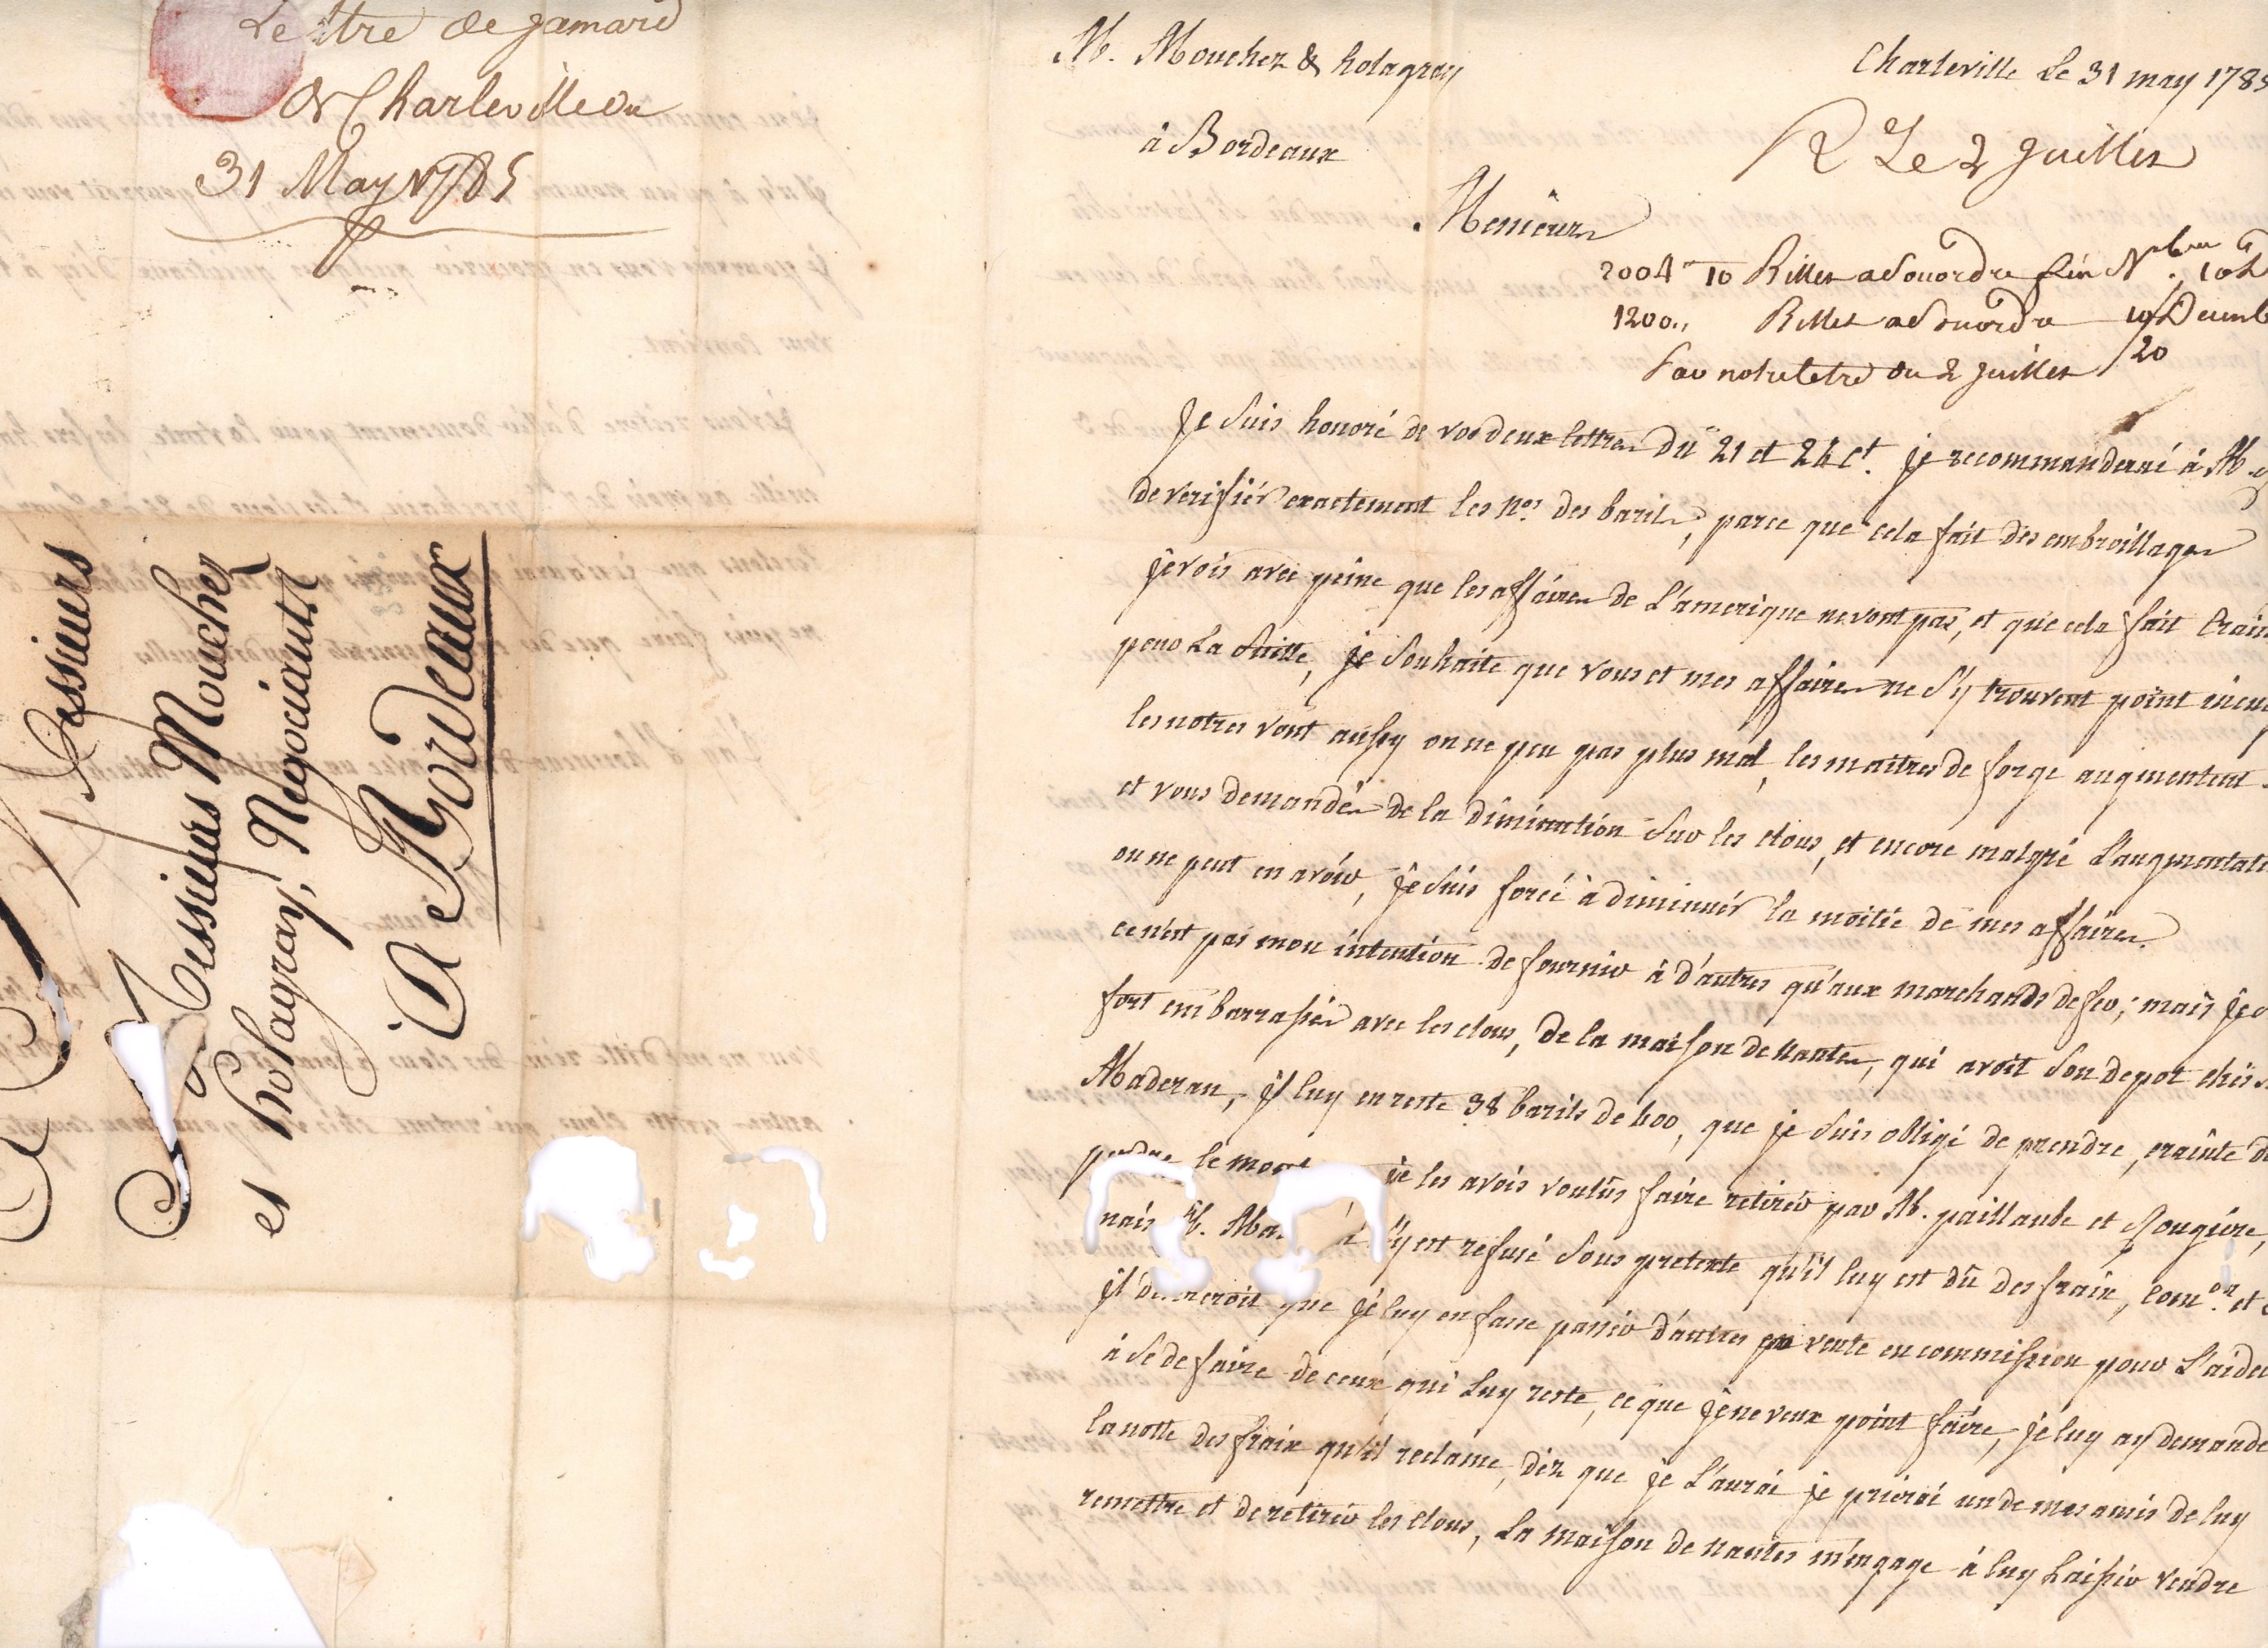 Lettre de Jamard
de Charleville du
31 May 1785
Messieurs
Messieurs Mouchez
et holagray, Negociants
a Bordeaux
M. Mouchez & holagray
à Bordeaux
Charleville Le 31 may 1785
R Le 2 Juillet
Messieurs
2004 " 10 Billet a Son ordre fin N.bre
1200 " Billet a Son ordre
20
par notre lettre du 2 Juillet
Je Suis honoré de vos deux lettres du 21 et 24 Ct. je recommanderai à M
de verifiér exactement les Nos. des barils, parce que cela fait des embroillages
je vois avec peine que les affaires de L'amerique ne vont pas, et que cela fait Crain
pour La Suitte, je Souhaite que vous et mes affaires ne S'y trouvent point
les notres vont aussy on ne peu pas plus mal, les maitres de forge augmentent
et vous demandés de la diminution Sur les Clous, et encore malgré L'augmentati
on ne peut en avoir, je Suis forcé à diminuér la moitié de mes affaires.
ce n'est pas mon intention de fournir à d'autres qu'aux marchands de fer; mais je
fort embarrassés avec les clous, de la maison de Nantes, qui avoit Son depot chés
Maderan, jl luy en reste 38 barils de 400, que je Suis obligé de prendre, crainte de
perdre le mont je les avois voulus faire retirér par M. paillaube et Rougiére,
mais M. Ma S'y est refusé Sous pretexte qu'il luy est dû des fraix, Comon. et
jl desireroit que je luy en fasse passér d'autres en vente en commission pour L'aider
à Se defaire de ceux qui Luy reste, ce que je ne veux point faire, je luy ay demandé
la notte des fraix qu'il reclame, dèz que je L'aurai je prierai un de mes amis de luy
remettre et de retirér les Clous, La Maison de Nantes m'engage à luy Laissér vendre